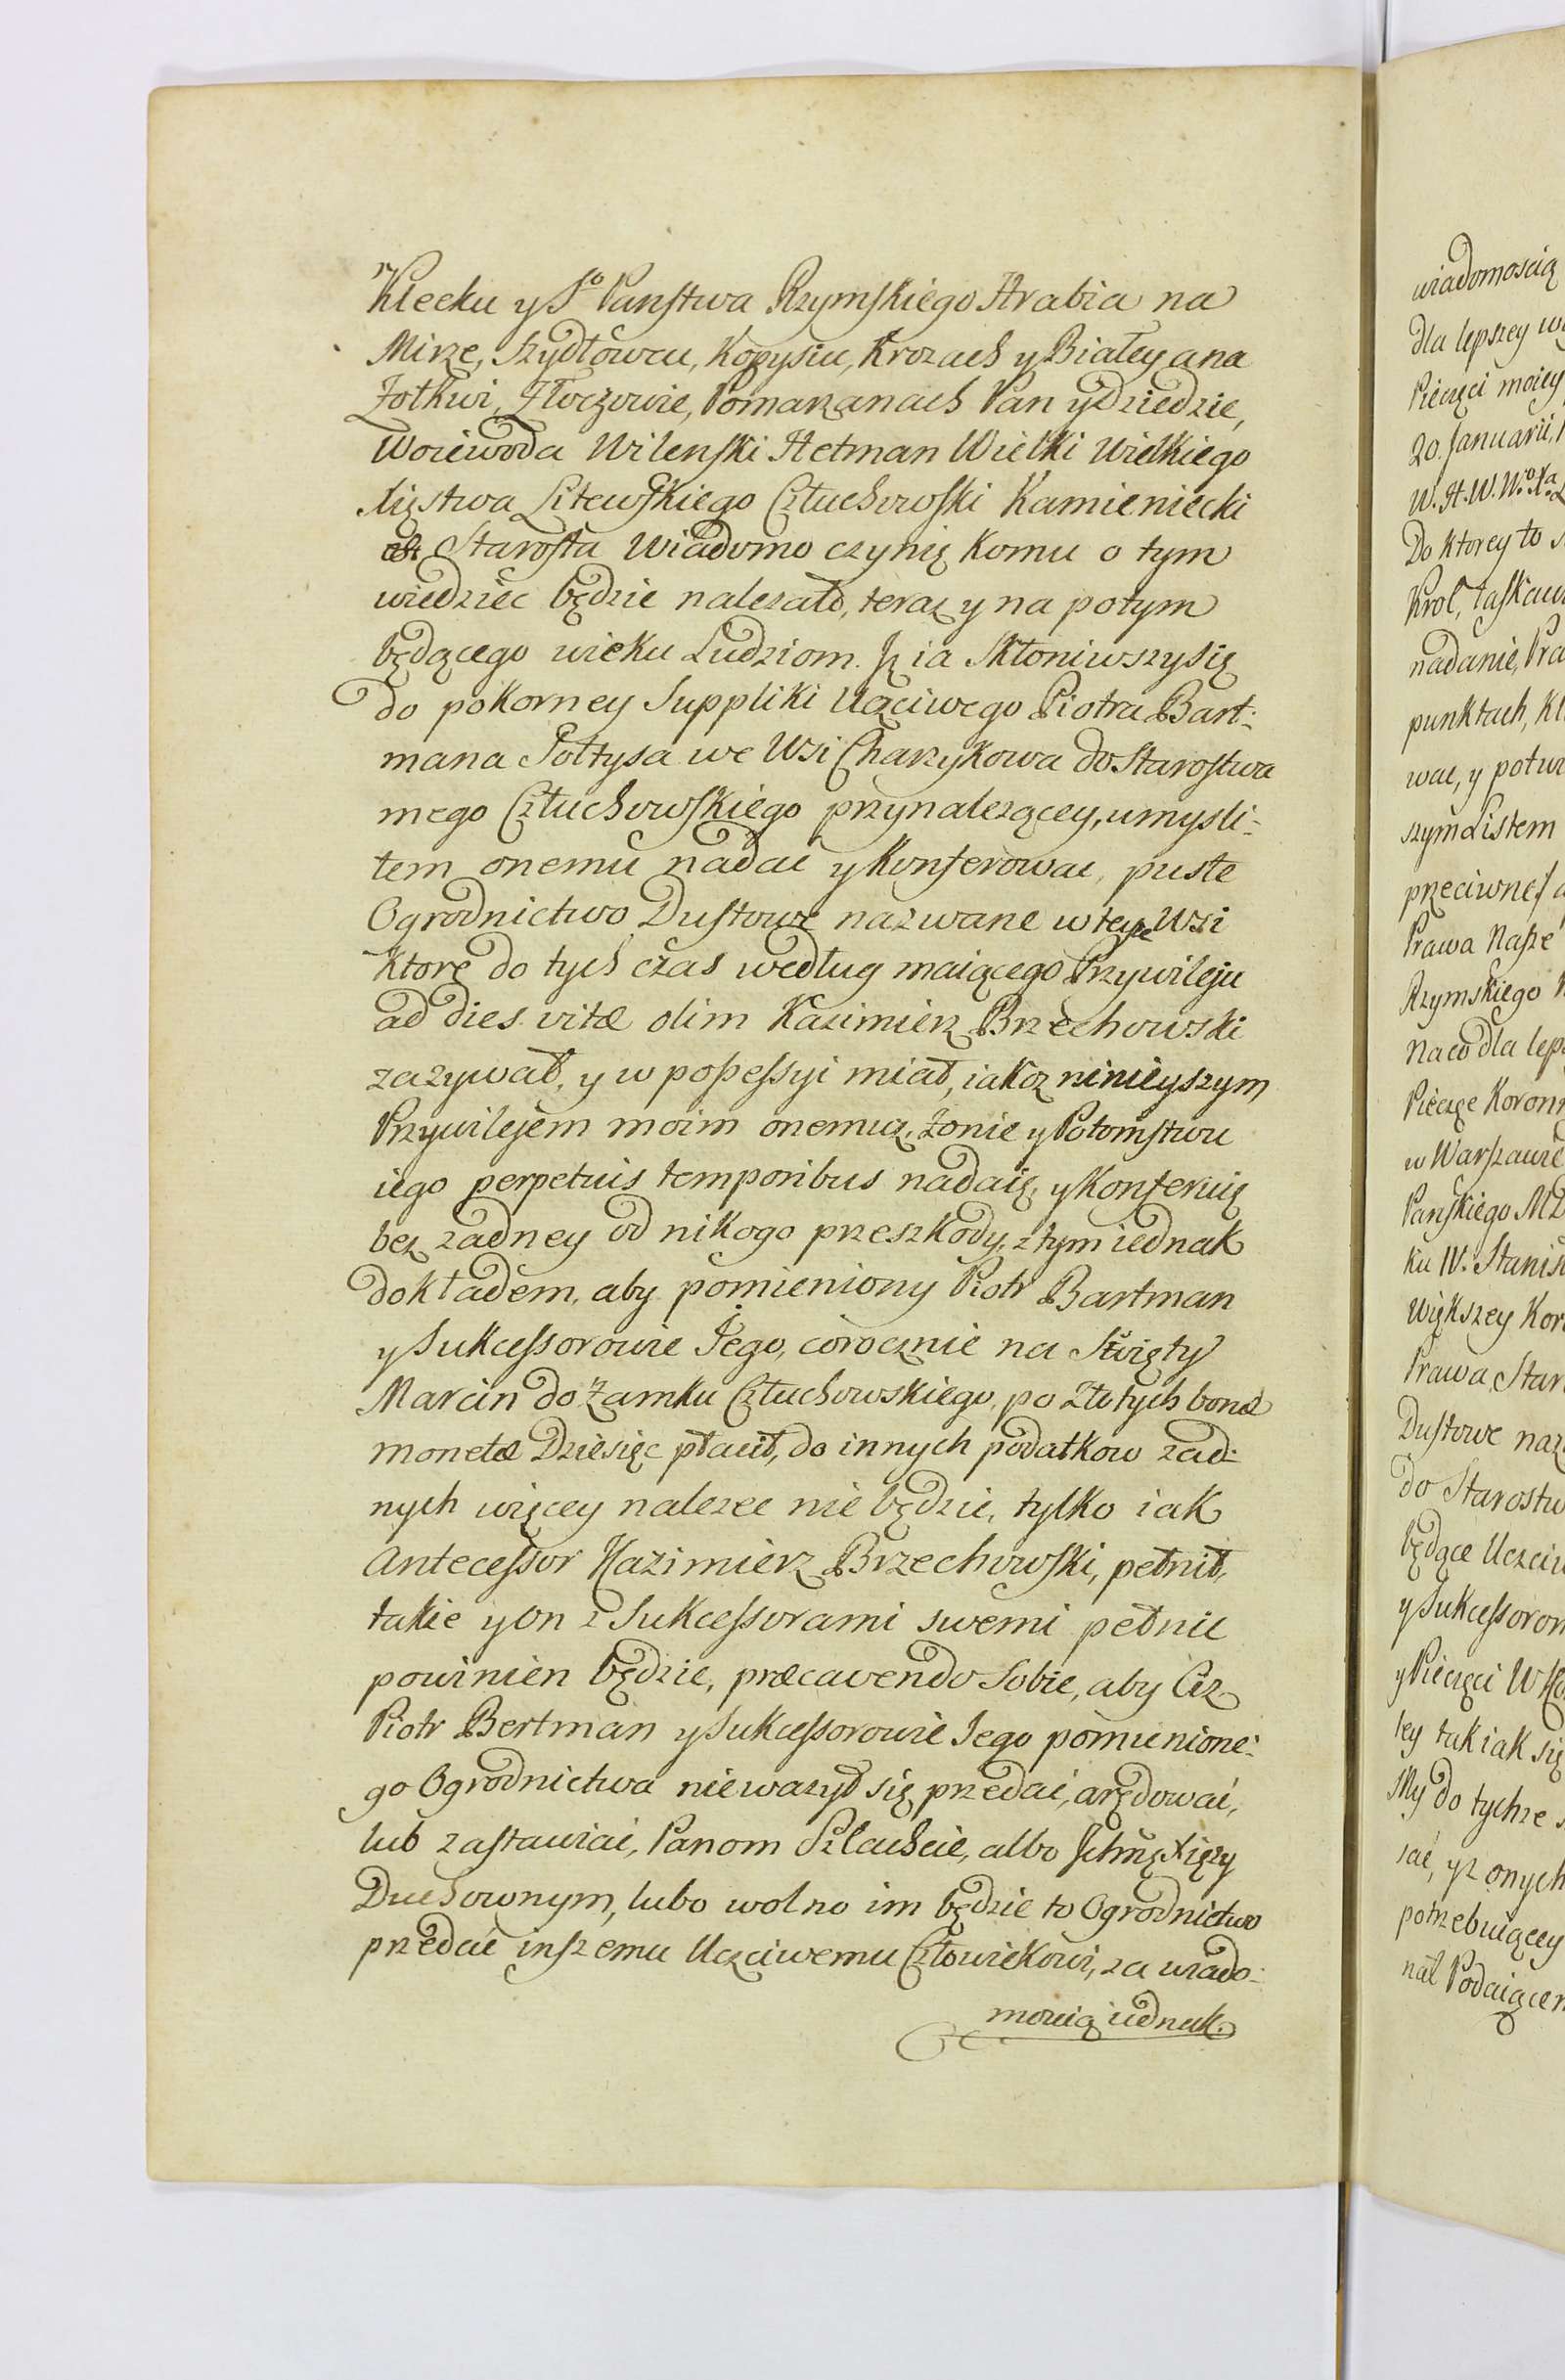 Klecku y S.º Panstwa Rzymskiego Hrabia na
Mirze, Szydłowcu, Kopysiu, Krozach y Białey a na
Zołkwi, Złoczowie, Pomarzanach Pan y Dziedzic,
Woiewoda Wilenski Hetman Wielki Wielkiego
Xięstwa Litewskiego Człuchowski Kamieniecki
Starosta Wiadomo czynię komu o tym
wiedziec będzie nalezało, teraz y na potym
będącego wieku Ludziom. Jż ia skłoniwszy się
do pokorney Suppliki Uczciwego Piotra Bart:
mana Sołtysa we Wsi Charzykowa do Starostwa
mego Człuchowskiego przynalezącey, umysli:
łem onemu nadac y konferowac, puste
Ogrodnictwo Dustowe nazwane w teyze Wsi
ktore do tych czas według maiącego Przywileju
ad dies vitæ olim Kazimierz Brzechowski
zazywał, y w possessyi miał, iakoz ninieyszym
Przywilejem moim onemuz, żonie y Potomstwu
iego perpetuis temporibus nadaię, y konferuię
bez zadney od nikogo przeszkody, z tym iednak
dokładem, aby pomieniony Piotr Bartman
y Sukcessorowie Jego, corocznie na Swięty
Marcin do Zamku Człuchowskiego, po Złotych bonæ
monetæ Dziesięc płacił, do innych podatkow zad:
nych więcey nalezec nie będzie, tylko iak
Antecessor Kazimierz Brzechowski, pełnił,
takie y On z Sukcessorami swemi pełnic
powinien będzie, præcavendo sobie, aby Ciz
Piotr Bertman y Sukcessorowie Jego pomienione:
go Ogrodnictwa niewazył się przedać, arędować,
lub zastawiać, Panom Szlachcie, albo Xięzy
Duchownym, lubo wolno im będzie to Ogrodnictwo
przedać inszemu Uczciwemu Człowiekowi, za wiado:
moscią iednak.
wiadomoscią
dla lepszey
Pieczęci moiey
20. Januarii,
W. H. W.
Do ktorey to
Krol, łaskaw
nadanie, Pra
punktach, Kl
wac, y potwi
szym Listem
przeciwne/
Prawa Nasze
Rzymskiego
Na co dla lep
Pieczęc Koron
w Warszawie
Panskiego
ku IV. Stanis
większey Kor
Prawa, Star
Dustowe naz
do Starostw
będące Uczciw
y Sukcessorom
y Pieczęci
tey tak iak się
My do tychze
sac, y z onych
potrzebuiącey
nał Podaiącem